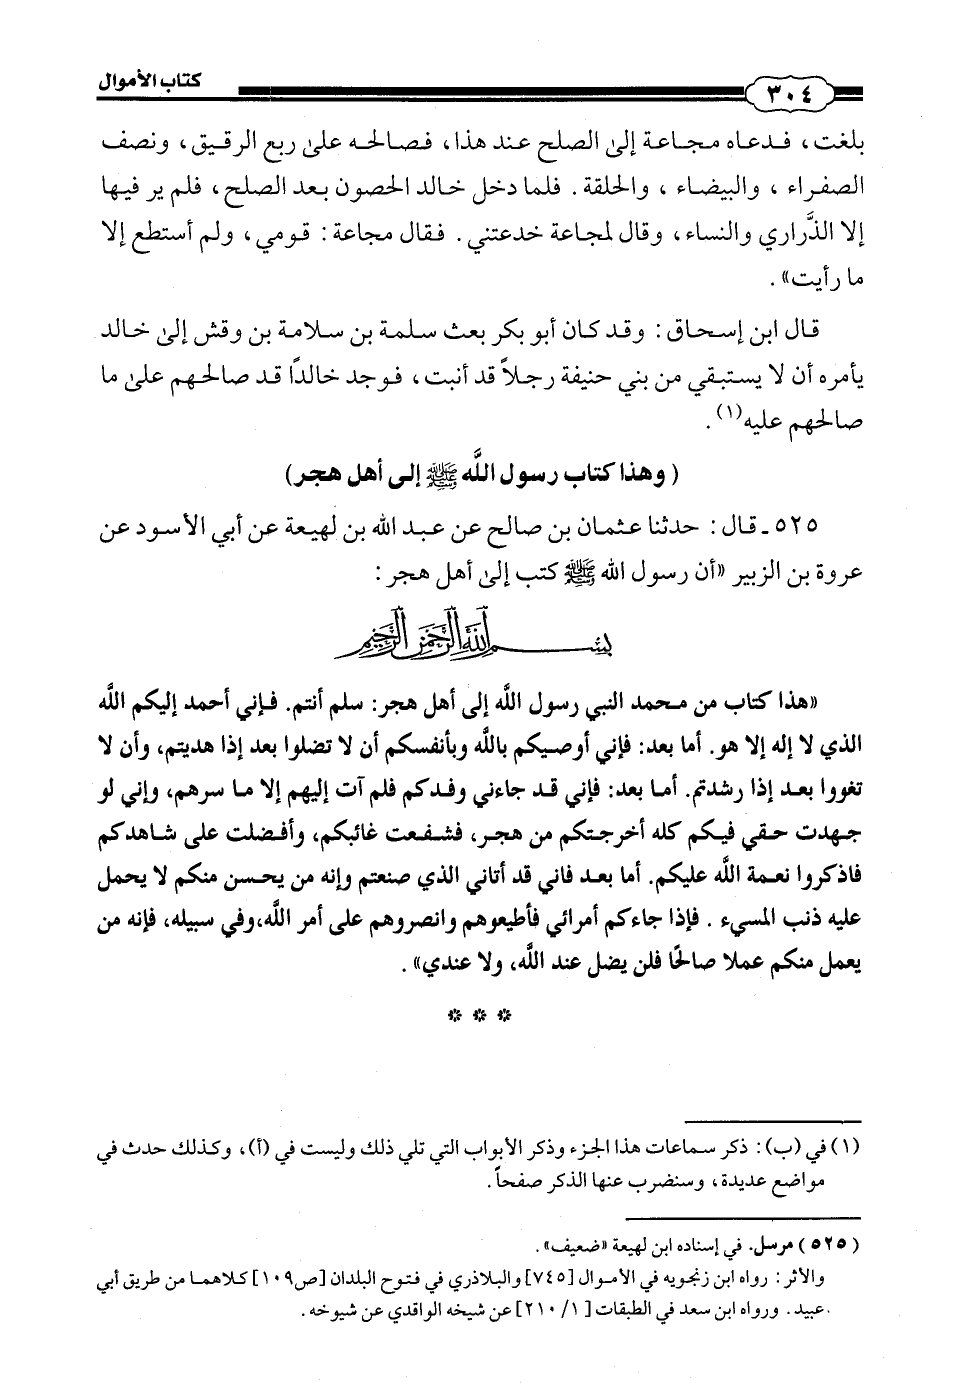 كتاب الأموال
٣٠٤
بلغت، فدعاه مجاعة إلى الصلح عند هذا، فصالحه على ربع الرقيق، ونصف
الصفراء، والبيضاء، والحلقة. فلما دخل خالد الحصون بعد الصلح، فلم ير فيها
إلا الذَّراري والنساء، وقال لمجاعة خدعتني. فقال مجاعة: قومي، ولم أستطع إلا
ما رأيت».
قال ابن إسحاق: وقد كان أبو بكر بعث سلمة بن سلامة بن وقش إلى خالد
يأمره أن لا يستبقي من بني حنيفة رجلاً قد أنبت، فوجد خالدًا قد صالحهم على ما
صالحهم عليه(١).
(وهذا كتاب رسول اللَّه ﷺ إلى أهل هجر)
٥٢٥ ـ قال: حدثنا عثمان بن صالح عن عبد الله بن لهيعة عن أبي الأسود عن
عروة بن الزبير «أن رسول الله ﷺ كتب إلى أهل هجر:
بسم الله الرحمن الرحيم
«هذا كتاب من محمد النبي رسول اللَّه إلى أهل هجر: سلم أنتم. فإني أحمد إليكم اللَّه
الذي لا إله إلا هو. أما بعد: فإني أوصيكم باللَّه وبأنفسكم أن لا تضلوا بعد إذا هديتم، وأن لا
تغووا بعد إذا رشدتم. أما بعد: فإني قد جاءني وفدكم فلم آت إليهم إلا ما سرهم، وإني لو
جهدت حقي فيكم كله أخرجتكم من هجر، فشفعت غائبكم، وأفضلت على شاهدكم
فاذكروا نعمة اللَّه عليكم. أما بعد فاني قد أتاني الذي صنعتم وإنه من يحسن منكم لا يحمل
عليه ذنب المسيء. فإذا جاءكم أمرائي فأطيعوهم وانصروهم على أمر اللَّه،وفي سبيله، فإنه من
يعمل منكم عملا صالحًا فلن يضل عند اللَّه، ولا عندي».
* * *
(١) في (ب): ذكر سماعات هذا الجزء وذكر الأبواب التي تلي ذلك وليست في (أ)، وكذلك حدث في
مواضع عديدة، وسنضرب عنها الذكر صفحاً.
(٥٢٥) مرسل. في إسناده ابن لهيعة «ضعيف».
والأثر: رواه ابن زنجويه في الأموال [٧٤٥] والبلاذري في فتوح البلدان [ص١٠٩] كلاهما من طريق أبي
عبيد. ورواه ابن سعد في الطبقات [١/ ٢١٠] عن شيخه الواقدي عن شيوخه.